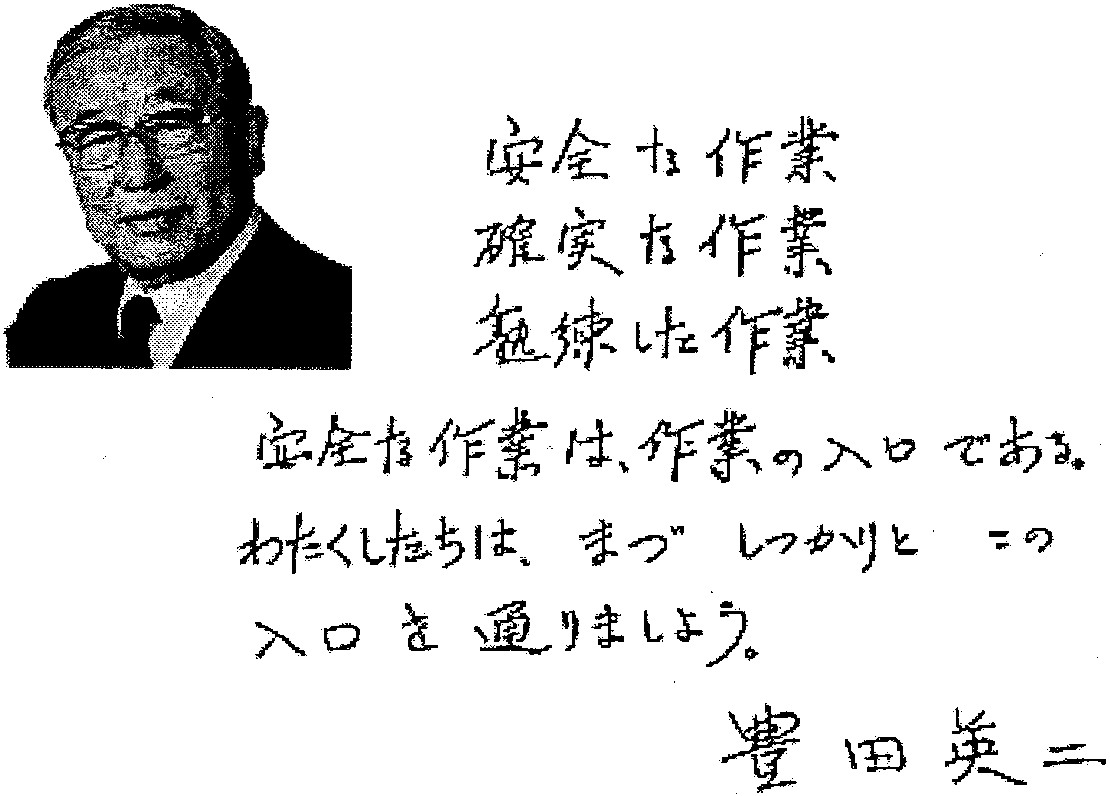 安全な作業
確実な作業
熟練した作業
安全な作業は、作業の入口である。
わたくしたちは、まづ しっかりと この
入口を通りましょう。
豊田英二